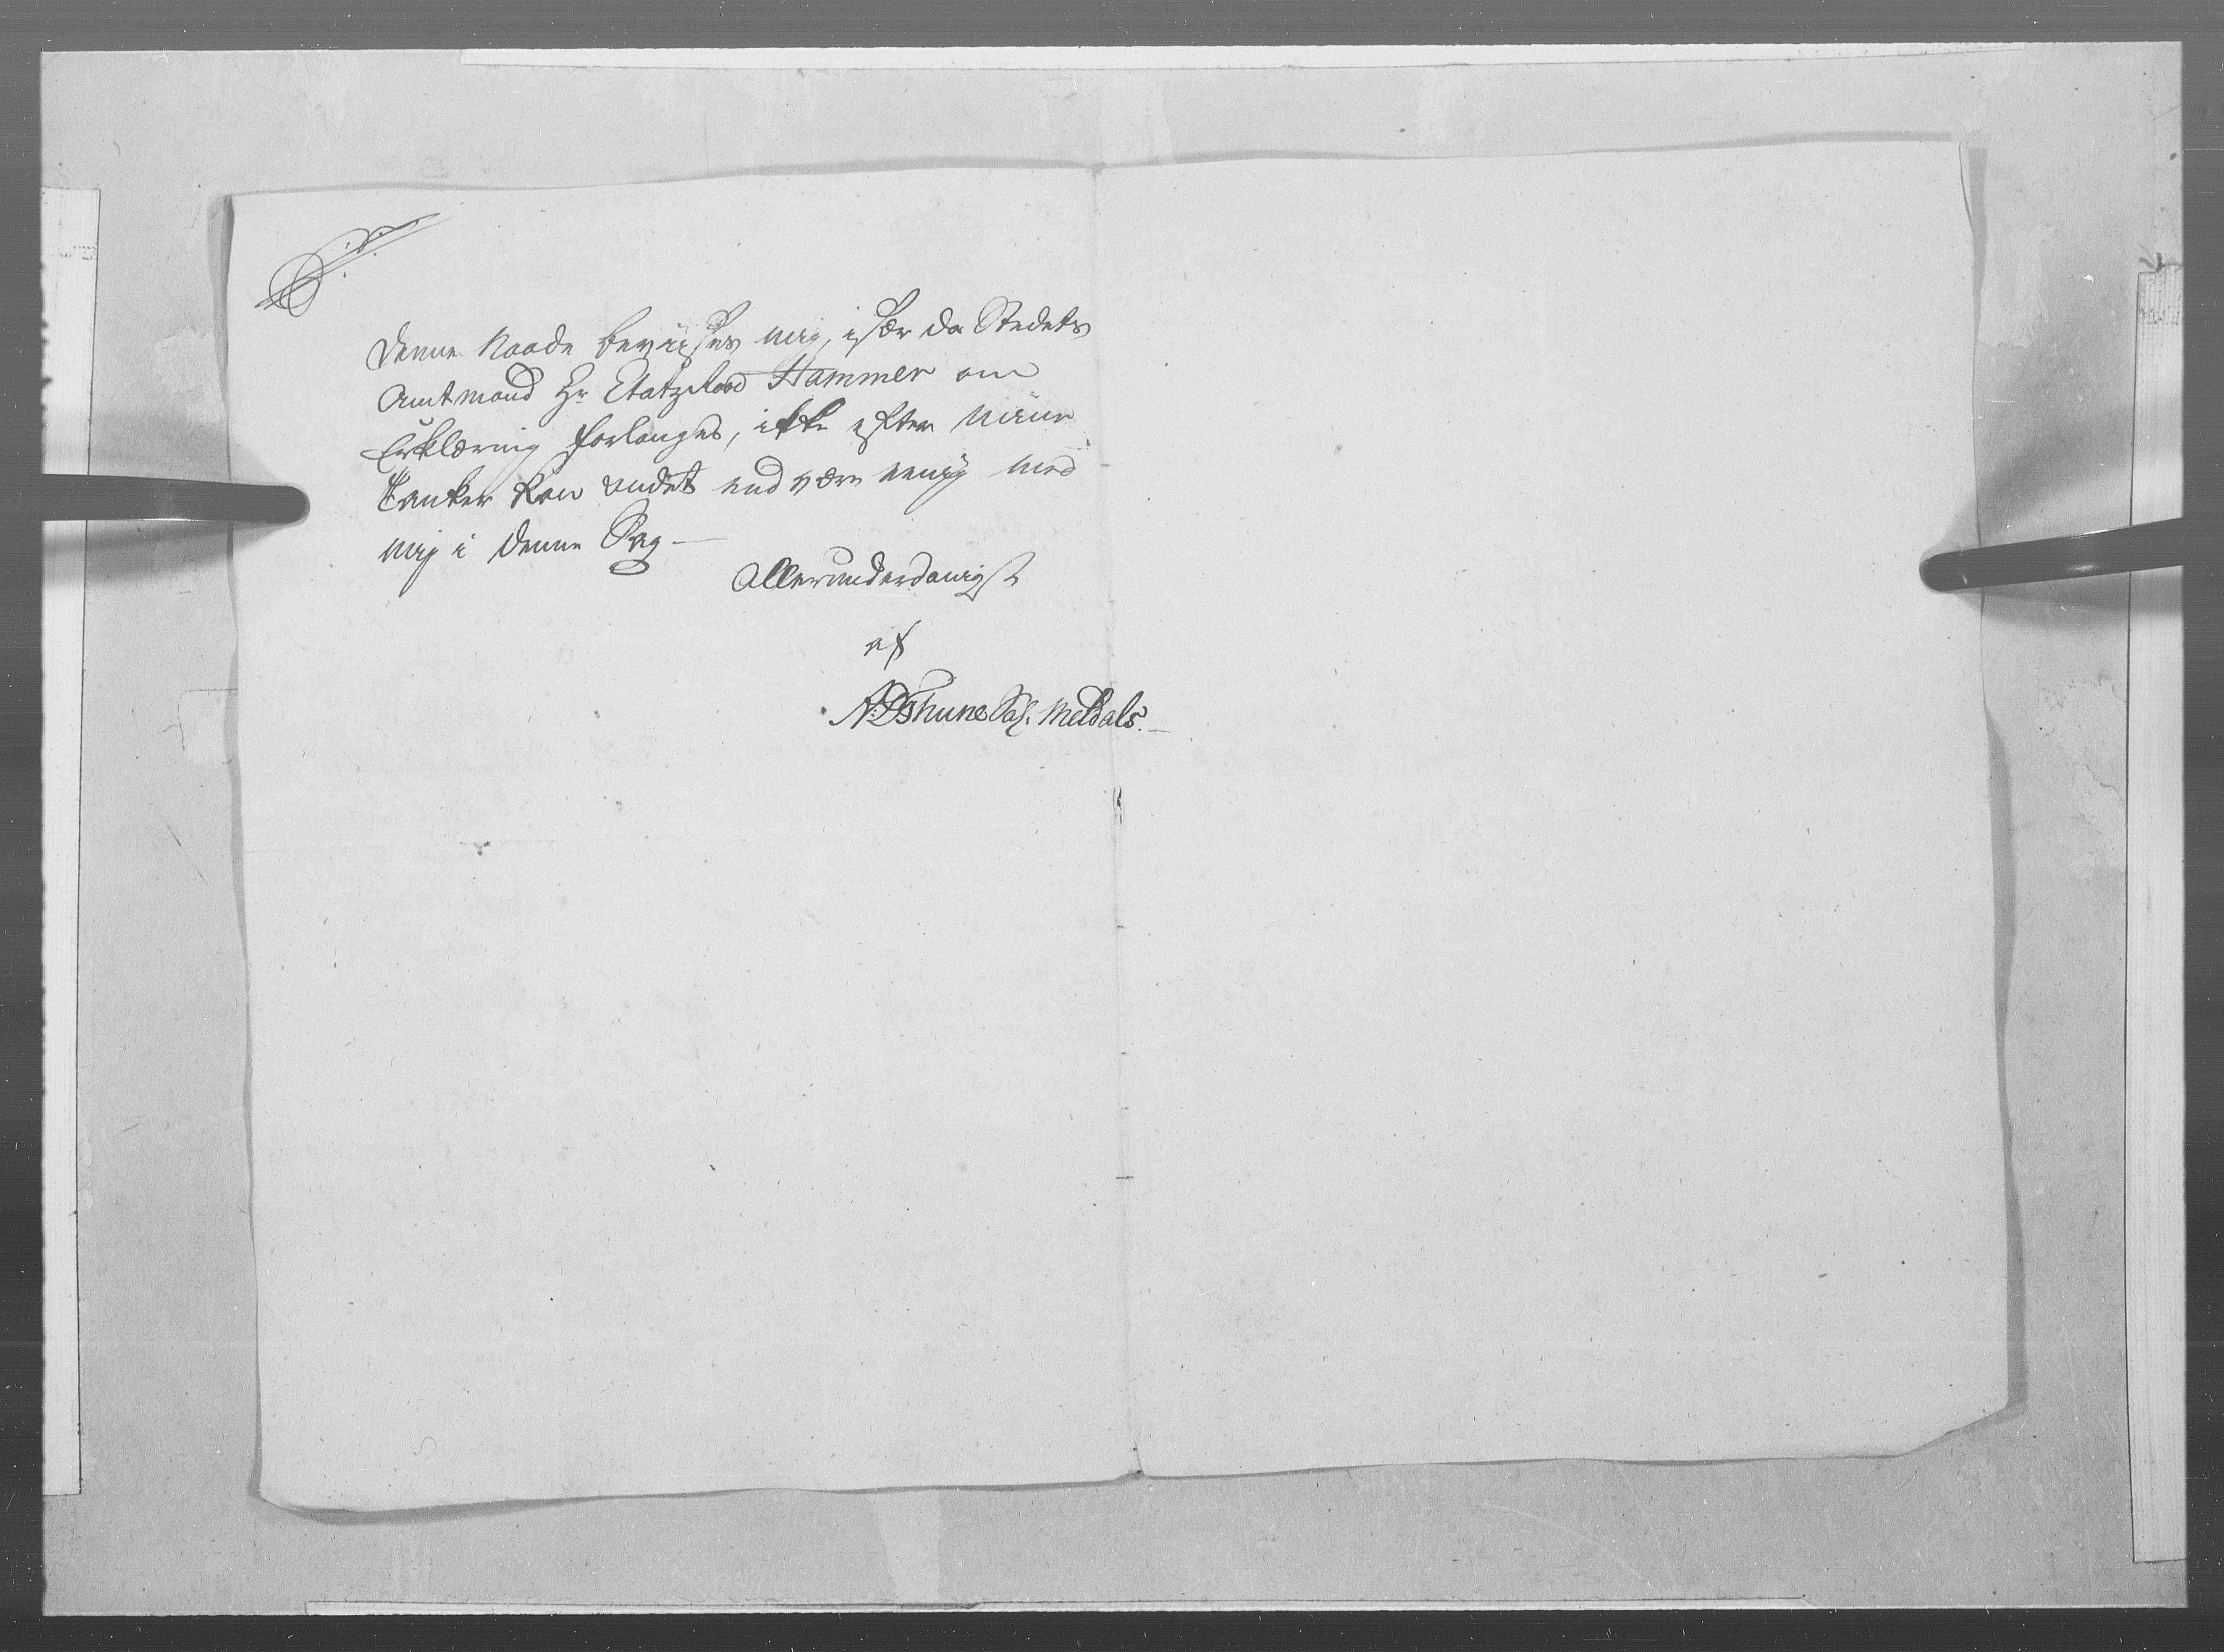 denne Naade beviises mig, især da Stedets
Amtmand Hr Etatzraad Hammer om
Erklæring forlanges, ikke efter miine
Tanker kan andet end være eenig med
mig i denne Sag —
Allerunderdanigst
af
Thune Sal. Meldals. —